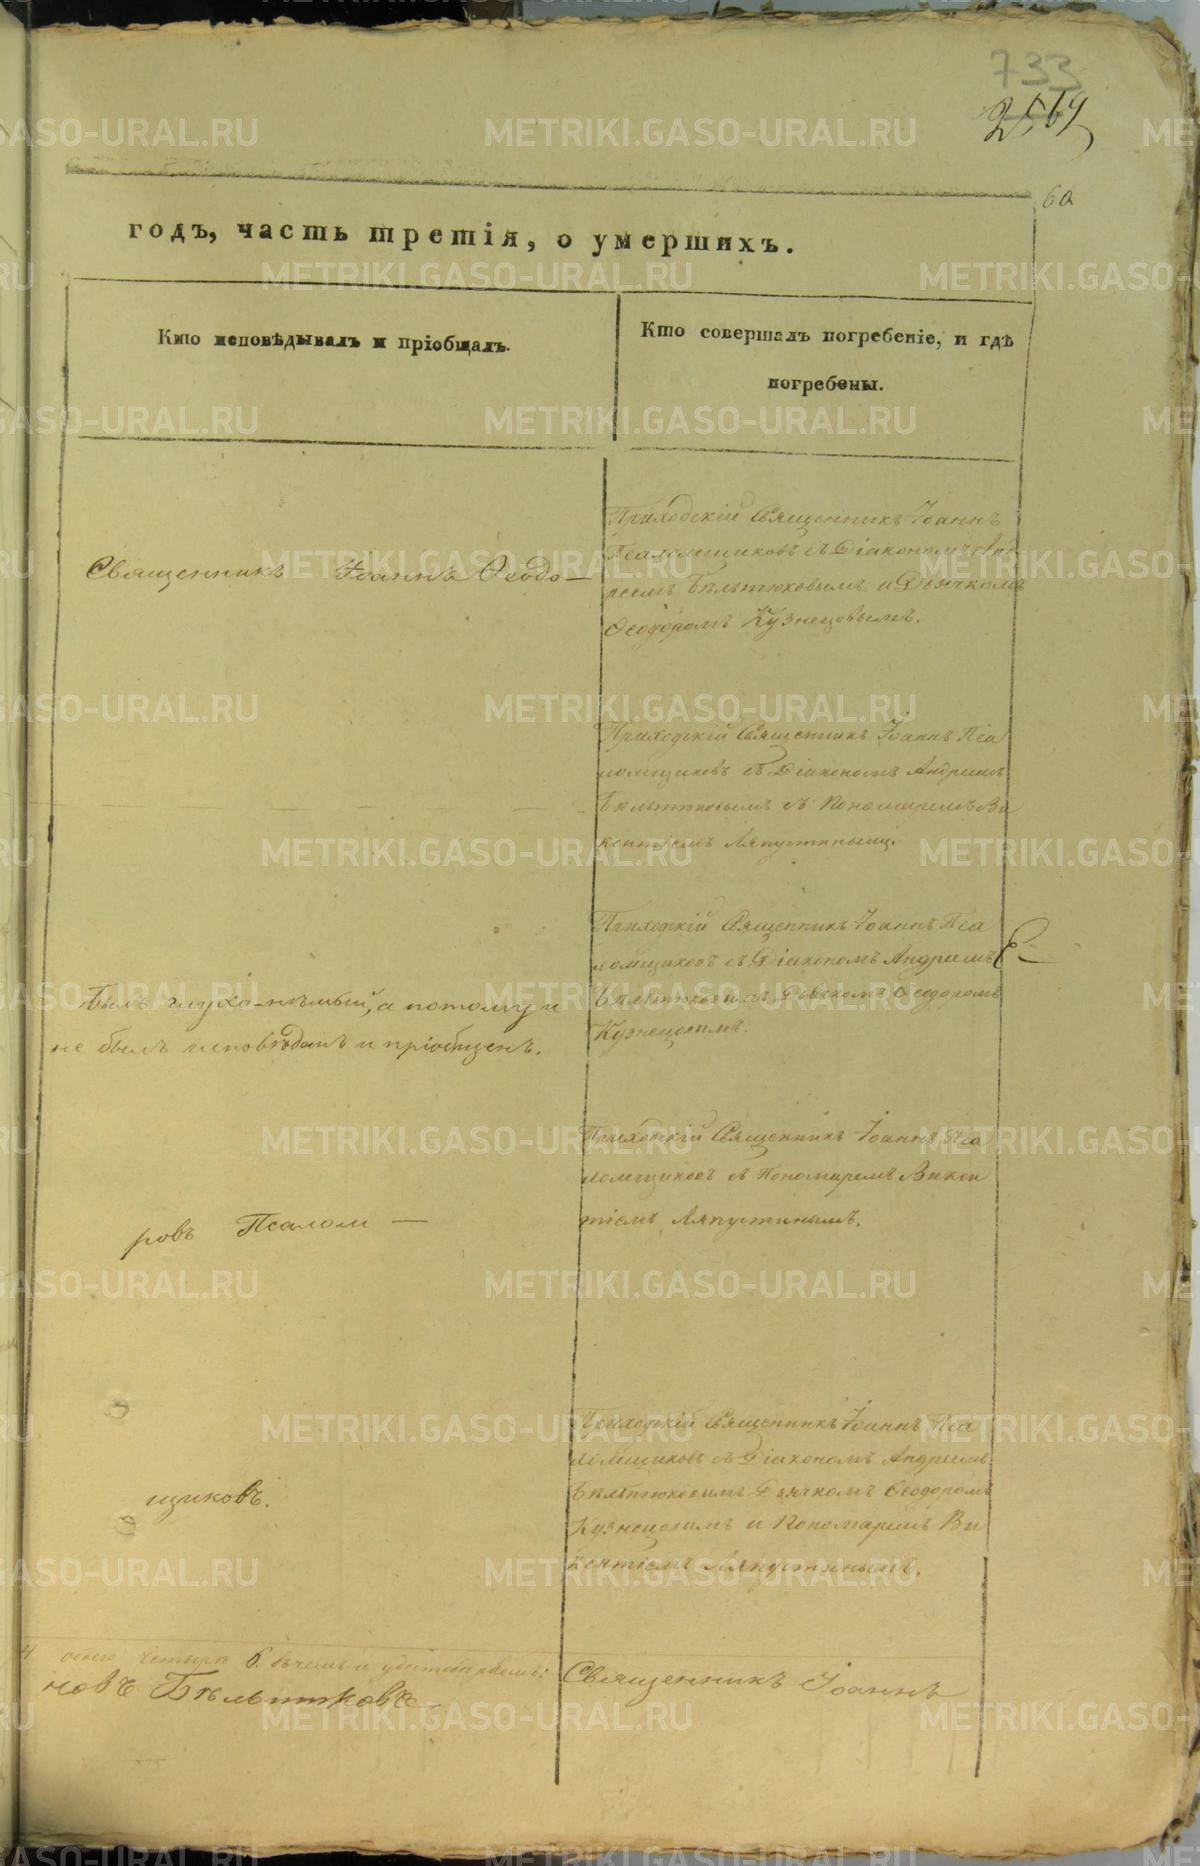 733
2569
60
годъ, часть третія, о умершихъ.
Кто исповѣдывалъ и пріобщалъ.
Кто совершалъ погребеніе, и гдѣ
погребены.
Священникъ Іоаннъ Ѳеодо—
Приходскій Священникъ Іоаннъ
Псаломщиковъ съ Діакономъ Анд
реемъ Бѣльтюковымъ и Дьячкомъ
Ѳеодоромъ Кузнецовымъ.
Приходскій Священникъ Іоаннъ Пса
ломщиковъ съ Діакономъ Андреемъ
Бѣльтюковымъ съ Пономаремъ Ви
кентіемъ Ляпустинымъ.
Былъ глухо-нѣмый, а потому и
не былъ исповѣданъ и пріобщенъ.
Приходскій Священникъ Іоаннъ Пса
ломщиковъ съ Діакономъ Андреемъ
Бѣльтюковымъ Дьячкомъ Ѳеодоромъ
Кузнецовымъ.
ровъ Псалом—
Приходскій Священникъ Іоаннъ Пса
ломщиковъ съ Пономаремъ Викен
тіемъ Ляпустинымъ.
щиковъ.
Приходскій Священникъ Іоаннъ Пса
ломщиковъ съ Діакономъ Андреемъ
Бѣльтюковымъ Дьячкомъ Ѳеодоромъ
Кузнецовымъ и Пономаремъ Ви
кентіемъ Ляпустинымъ.
всего четыре
новъ Бѣльтюковъ
Священникъ Іоаннъ
METRIKI.GASO-URAL.RU